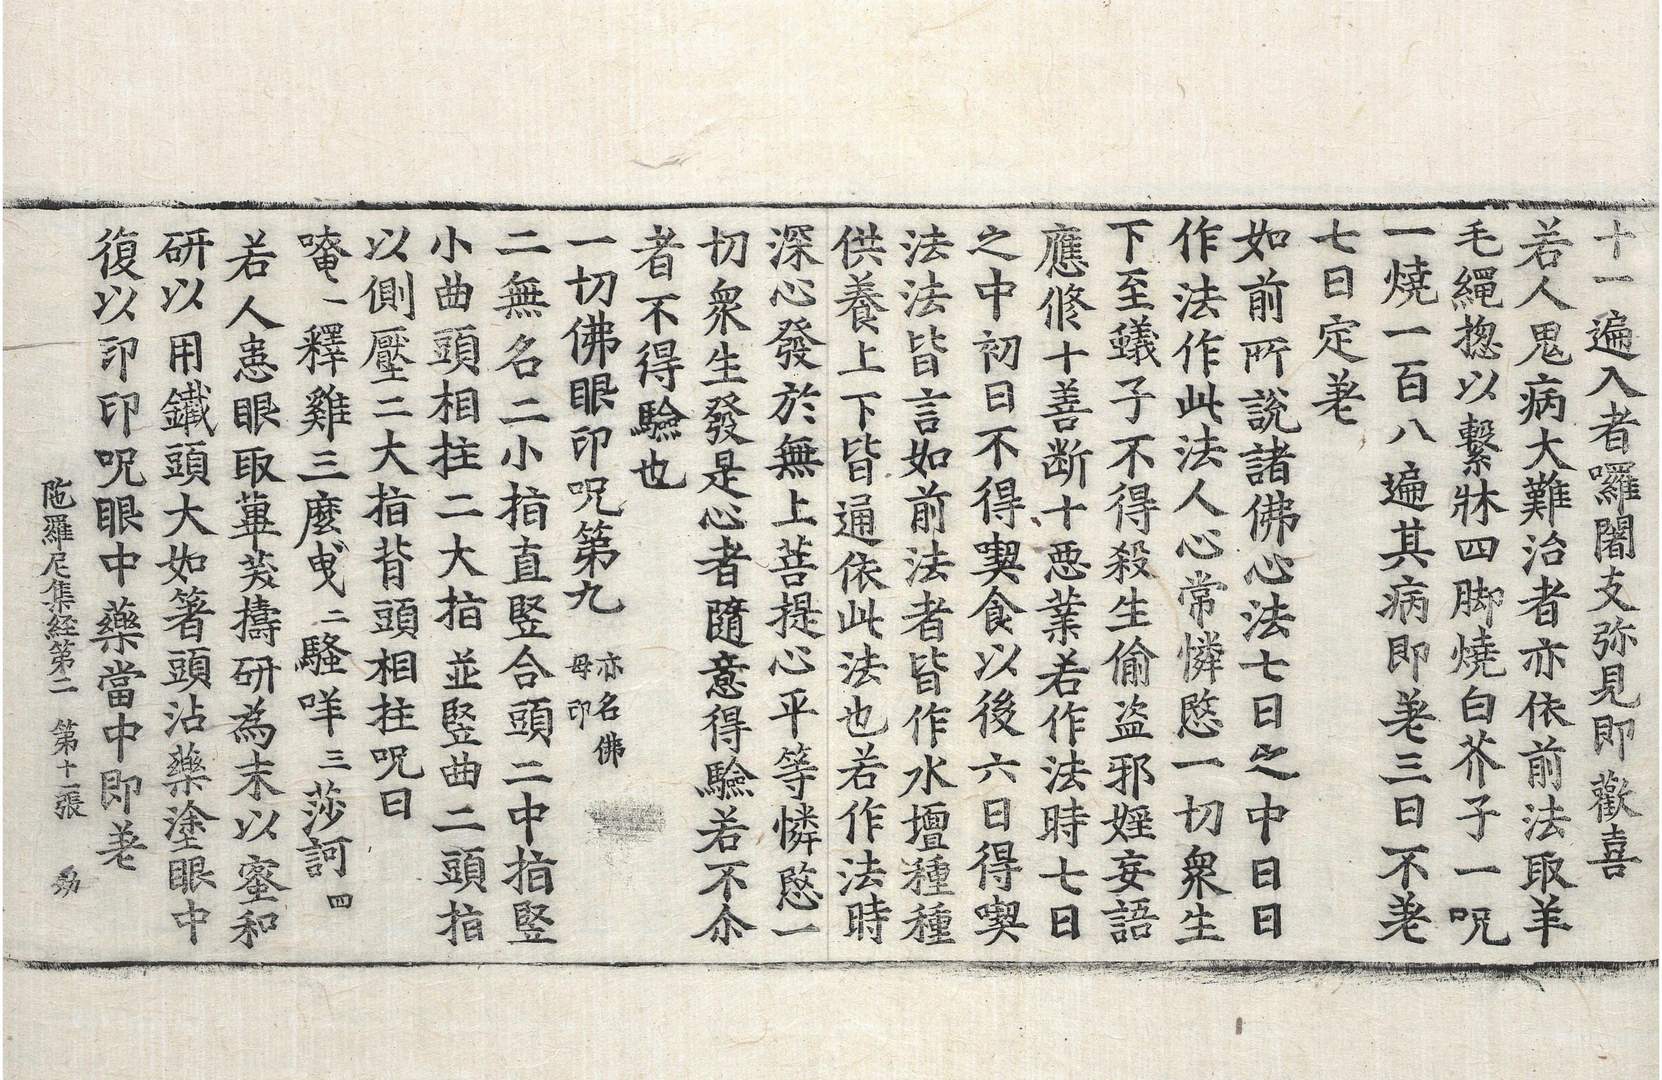 十一遍入者囉闍支弥見即歡喜
若人鬼病大難治者亦依前法取羊
毛繩揔以繫牀四脚燒白芥子一呪
一燒一百八遍其病即差三日不差
七日定差
如前所說諸佛心法七日之中日日
作法作此法人心常憐愍一切衆生
下至蟻子不得殺生偷盜邪婬妄語
應修十善断十惡業若作法時七日
之中初日不得喫食以後六日得喫
法法皆言如前法者皆作水壇種種
供養上下皆通依此法也若作法時
深心發於無上菩提心平等憐愍一
切衆生發是心者隨意得驗若不尒
者不得驗也
一切佛眼印呪第九 亦名佛母印
二無名二小指直竪合頭二中指竪
小曲頭相拄二大指並竪曲二頭指
以側壓二大指背頭相拄呪曰
唵一釋雞三麼曳二騷咩三莎訶四
若人患眼取蓽茇擣研為末以蜜和
研以用鐵頭大如箸頭沾藥塗眼中
復以印印呪眼中藥當中即差
陁羅尼集経第二 第十二張